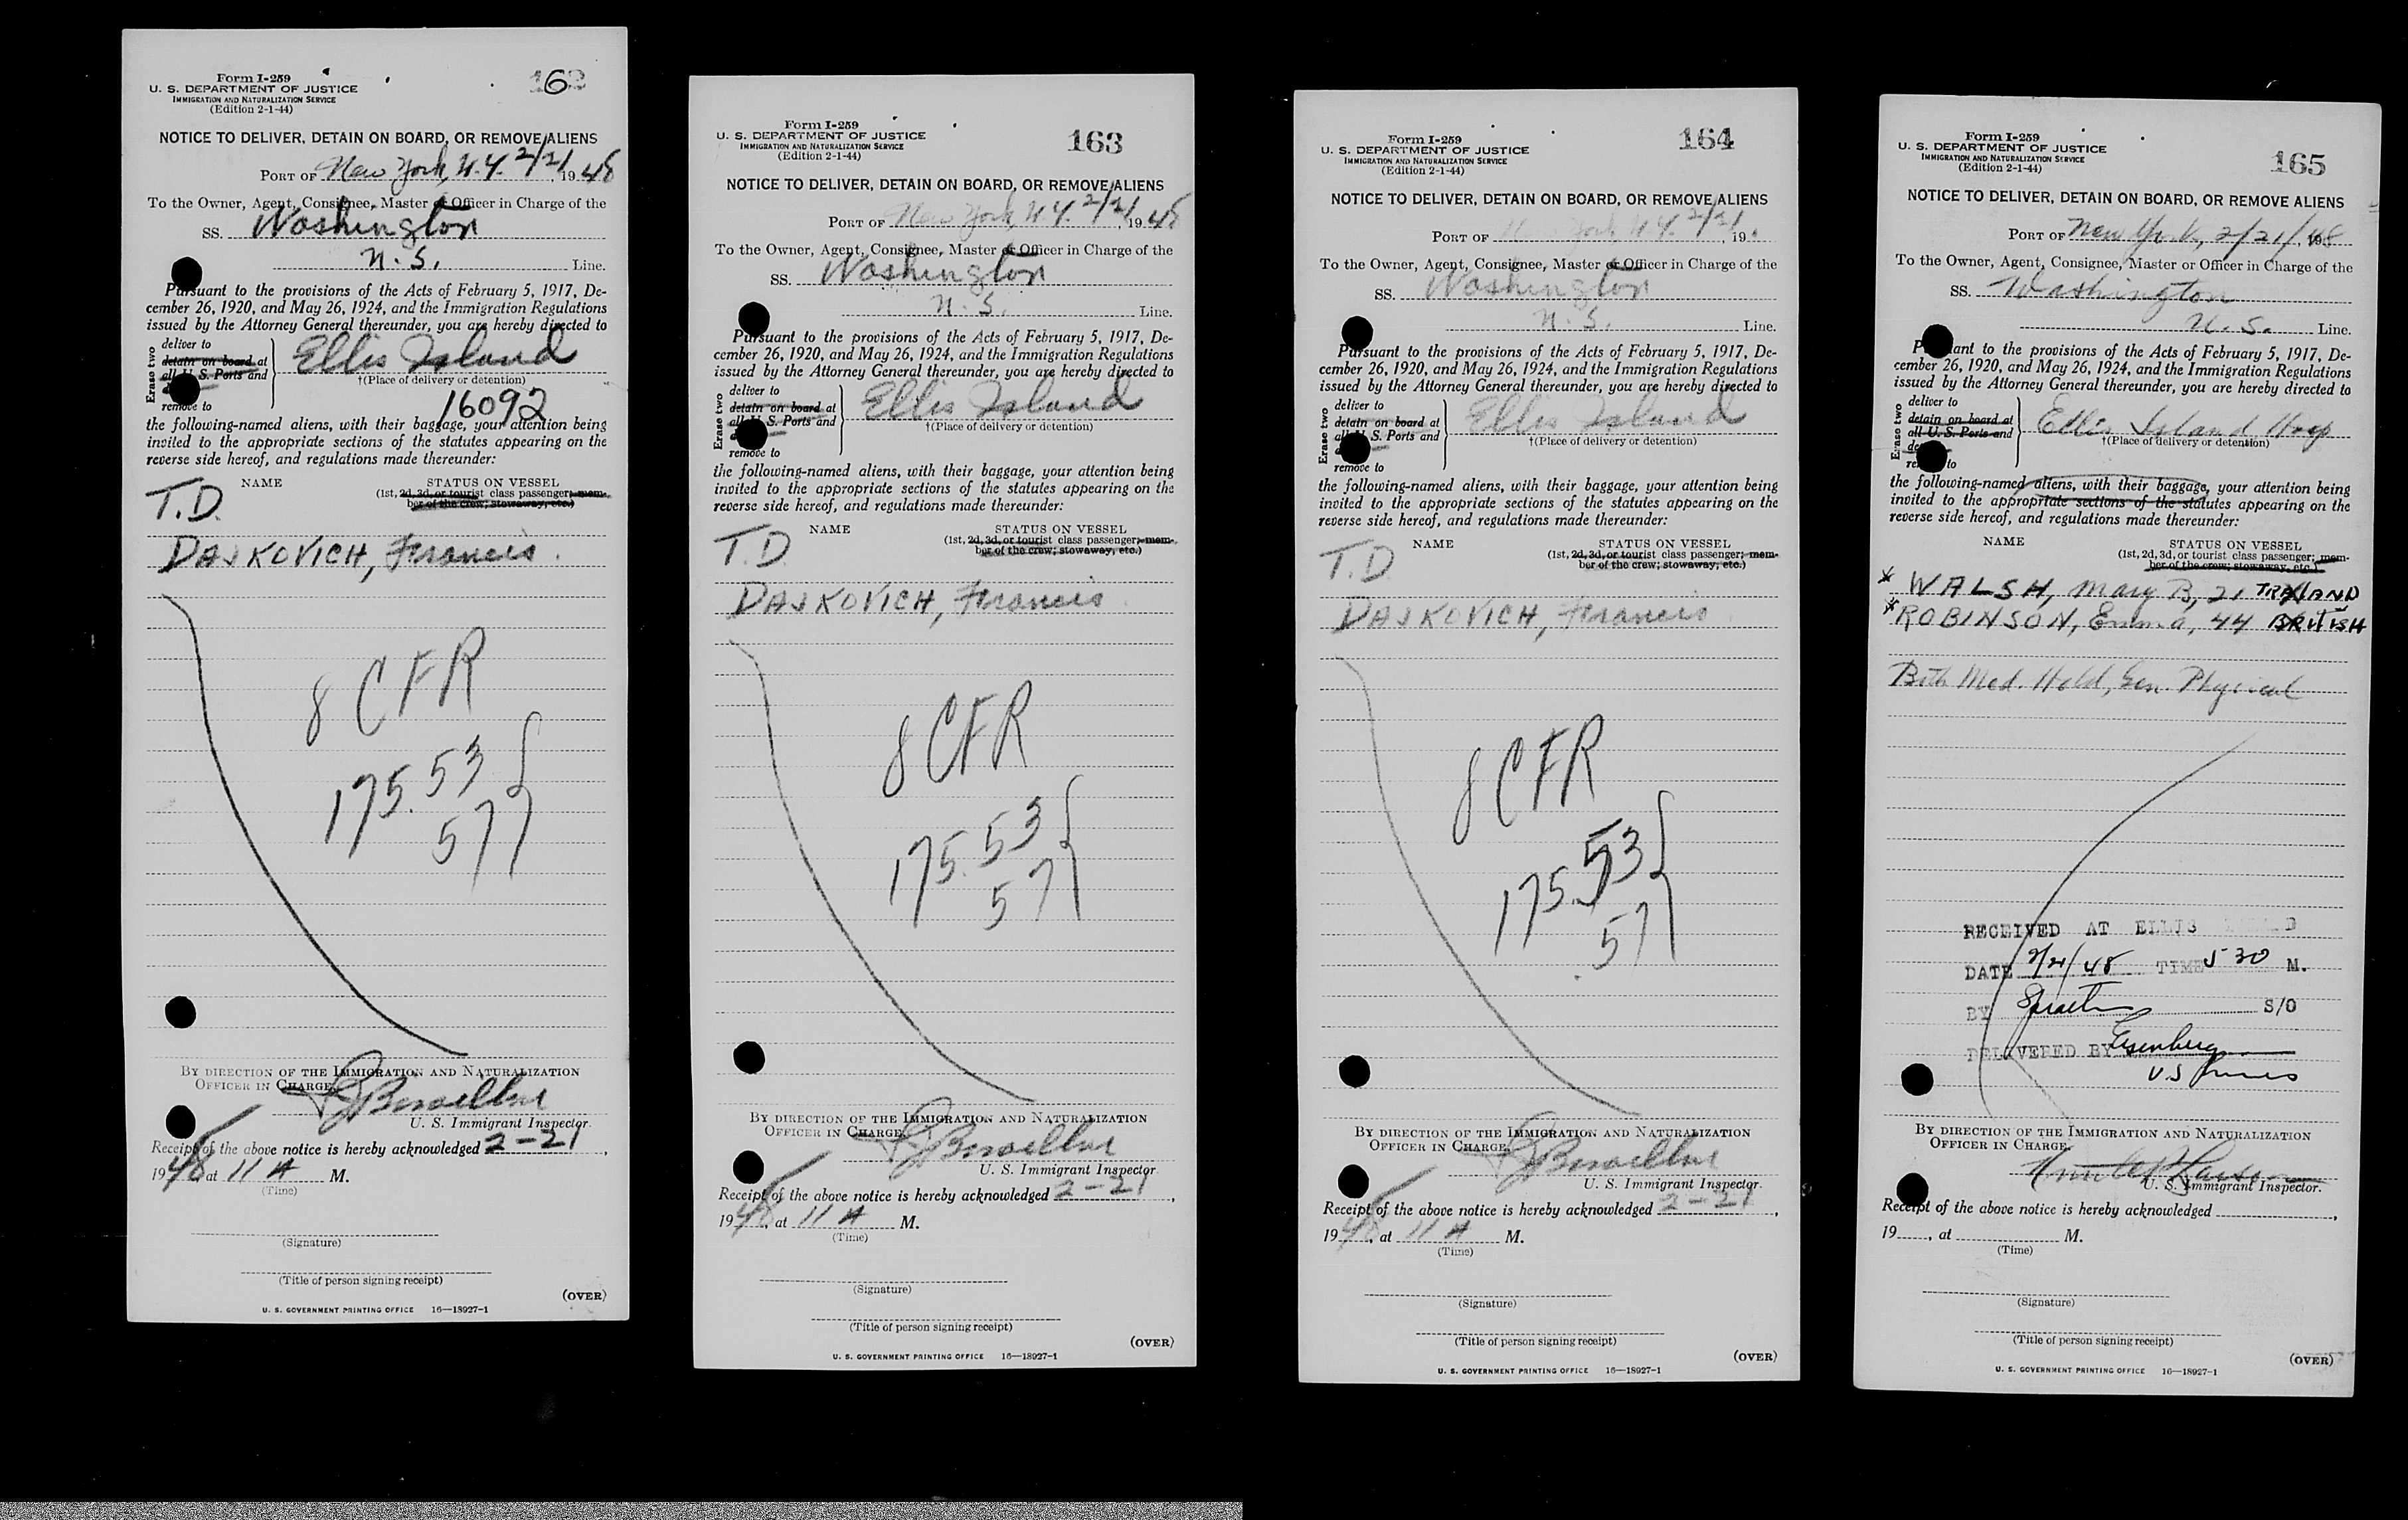 Form I-259
U. S. DEPARTMENT OF JUSTICE
IMMIGRATION AND NATURALIZATION SERVICE
(Edition 2-1-44)
NOTICE TO DELIVER, DETAIN ON BOARD, OR REMOVE ALIENS
PORT OF New York, N.Y. 2/21, 1948
To the Owner, Agent, Consignee, Master or Officer in Charge of the
SS. Washington
U.S. Line.
Pursuant to the provisions of the Acts of February 5, 1917, De-
cember 26, 1920, and May 26, 1924, and the Immigration Regulations
issued by the Attorney General thereunder, you are hereby directed to
Erase two
deliver to
detain on board at
all U. S. Ports and
remove to
Ellis Island
†(Place of delivery or detention)
16092
the following-named aliens, with their baggage, your attention being
invited to the appropriate sections of the statutes appearing on the
reverse side hereof, and regulations made thereunder:
NAME STATUS ON VESSEL
(1st, 2d, 3d, or tourist class passenger; mem-
ber of the crew; stowaway, etc.)
T.D.
DAJKOVICH, Francis
8 CFR
175.53
57
BY DIRECTION OF THE IMMIGRATION AND NATURALIZATION
OFFICER IN CHARGE
U. S. Immigrant Inspector.
Receipt of the above notice is hereby acknowledged 2-21,
1948 at 11 A M.
(Time)
(Signature)
(Title of person signing receipt)
(OVER)
U. S. GOVERNMENT PRINTING OFFICE 16—18927-1
Form I-259
163
U. S. DEPARTMENT OF JUSTICE
IMMIGRATION AND NATURALIZATION SERVICE
(Edition 2-1-44)
NOTICE TO DELIVER, DETAIN ON BOARD, OR REMOVE ALIENS
PORT OF New York, N.Y. 2/21, 1948
To the Owner, Agent, Consignee, Master or Officer in Charge of the
SS. Washington
U.S. Line.
Pursuant to the provisions of the Acts of February 5, 1917, De-
cember 26, 1920, and May 26, 1924, and the Immigration Regulations
issued by the Attorney General thereunder, you are hereby directed to
Erase two
deliver to
detain on board at
all U. S. Ports and
remove to
Ellis Island
†(Place of delivery or detention)
the following-named aliens, with their baggage, your attention being
invited to the appropriate sections of the statutes appearing on the
reverse side hereof, and regulations made thereunder:
NAME STATUS ON VESSEL
(1st, 2d, 3d, or tourist class passenger; mem-
ber of the crew; stowaway, etc.)
T.D.
DAJKOVICH, Francis
8 CFR
175.53
57
BY DIRECTION OF THE IMMIGRATION AND NATURALIZATION
OFFICER IN CHARGE
U. S. Immigrant Inspector.
Receipt of the above notice is hereby acknowledged 2-21,
1948, at 11 A M.
(Time)
(Signature)
(Title of person signing receipt)
(OVER)
U. S. GOVERNMENT PRINTING OFFICE 16—18927-1
Form I-259
164
U. S. DEPARTMENT OF JUSTICE
IMMIGRATION AND NATURALIZATION SERVICE
(Edition 2-1-44)
NOTICE TO DELIVER, DETAIN ON BOARD, OR REMOVE ALIENS
PORT OF New York, N.Y. 2/21, 19
To the Owner, Agent, Consignee, Master or Officer in Charge of the
SS. Washington
U.S. Line.
Pursuant to the provisions of the Acts of February 5, 1917, De-
cember 26, 1920, and May 26, 1924, and the Immigration Regulations
issued by the Attorney General thereunder, you are hereby directed to
Erase two
deliver to
detain on board at
all U. S. Ports and
remove to
Ellis Island
†(Place of delivery or detention)
the following-named aliens, with their baggage, your attention being
invited to the appropriate sections of the statutes appearing on the
reverse side hereof, and regulations made thereunder:
NAME STATUS ON VESSEL
(1st, 2d, 3d, or tourist class passenger; mem-
ber of the crew; stowaway, etc.)
T.D
DAJKOVICH, Francis
8 CFR
175.53
57
BY DIRECTION OF THE IMMIGRATION AND NATURALIZATION
OFFICER IN CHARGE
U. S. Immigrant Inspector.
Receipt of the above notice is hereby acknowledged 2-21,
1948, at 11 A M.
(Time)
(Signature)
(Title of person signing receipt)
(OVER)
U. S. GOVERNMENT PRINTING OFFICE 16—18927-1
Form I-259
165
U. S. DEPARTMENT OF JUSTICE
IMMIGRATION AND NATURALIZATION SERVICE
(Edition 2-1-44)
NOTICE TO DELIVER, DETAIN ON BOARD, OR REMOVE ALIENS
PORT OF New York, 2/21/, 1948
To the Owner, Agent, Consignee, Master or Officer in Charge of the
SS. Washington
U.S. Line.
Pursuant to the provisions of the Acts of February 5, 1917, De-
cember 26, 1920, and May 26, 1924, and the Immigration Regulations
issued by the Attorney General thereunder, you are hereby directed to
Erase two
deliver to
detain on board at
all U. S. Ports and
remove to
Ellis Island Hosp
†(Place of delivery or detention)
the following-named aliens, with their baggage, your attention being
invited to the appropriate sections of the statutes appearing on the
reverse side hereof, and regulations made thereunder:
NAME STATUS ON VESSEL
(1st, 2d, 3d, or tourist class passenger; mem-
ber of the crew; stowaway, etc.)
WALSH, Mary B, 21
ROBINSON, Emma, 44 BRITISH
Both Med. Hold, Gen. Physical
RECEIVED AT ELLIS
DATE 2/21/48 TIME 5 30 M.
BY S/O
DELIVERED BY Eisenberg
U.S Lines
BY DIRECTION OF THE IMMIGRATION AND NATURALIZATION
OFFICER IN CHARGE
U. S. Immigrant Inspector.
Receipt of the above notice is hereby acknowledged
19, at M.
(Time)
(Signature)
(Title of person signing receipt)
(OVER)
U. S. GOVERNMENT PRINTING OFFICE 16—18927-1